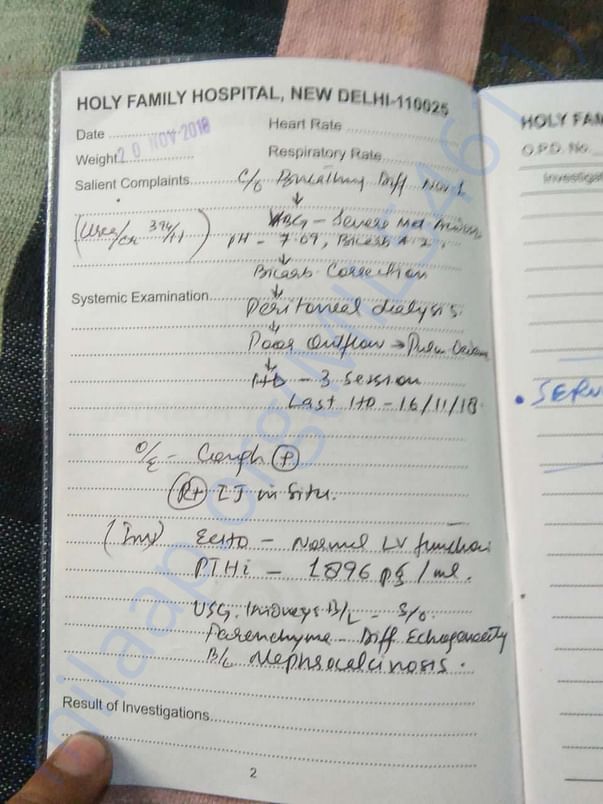 HOLY FAMILY HOSPITAL, NEW DELHI-110025
Date
Heart Rate
20 NOV 2018
Weight
Respiratory Rate
Salient Complaints
C/o Breathing Diff Nov 1
↓
(Urea/Cr 394/11)
VBG - Severe Met
pH - 7.09, Bicarb
↓
Bicarb Correction
↓
Systemic Examination
Peritoneal dialysis
↓
Poor Outflow →
↓
HD - 3 Session
Last HD - 16/11/18
O/E - Cough (+)
(Rt) IJ in situ.
(Inv)
ECHO - Normal LV function
PTHi - 1896 pg/ml.
USG. Kidneys B/L - S/o
Parenchyma - Diff Echogenecity
B/L Nephrocalcinosis.
Result of Investigations
2
HOLY FAM
O.P.D. No.
Investigat
• SERU
milaap.org